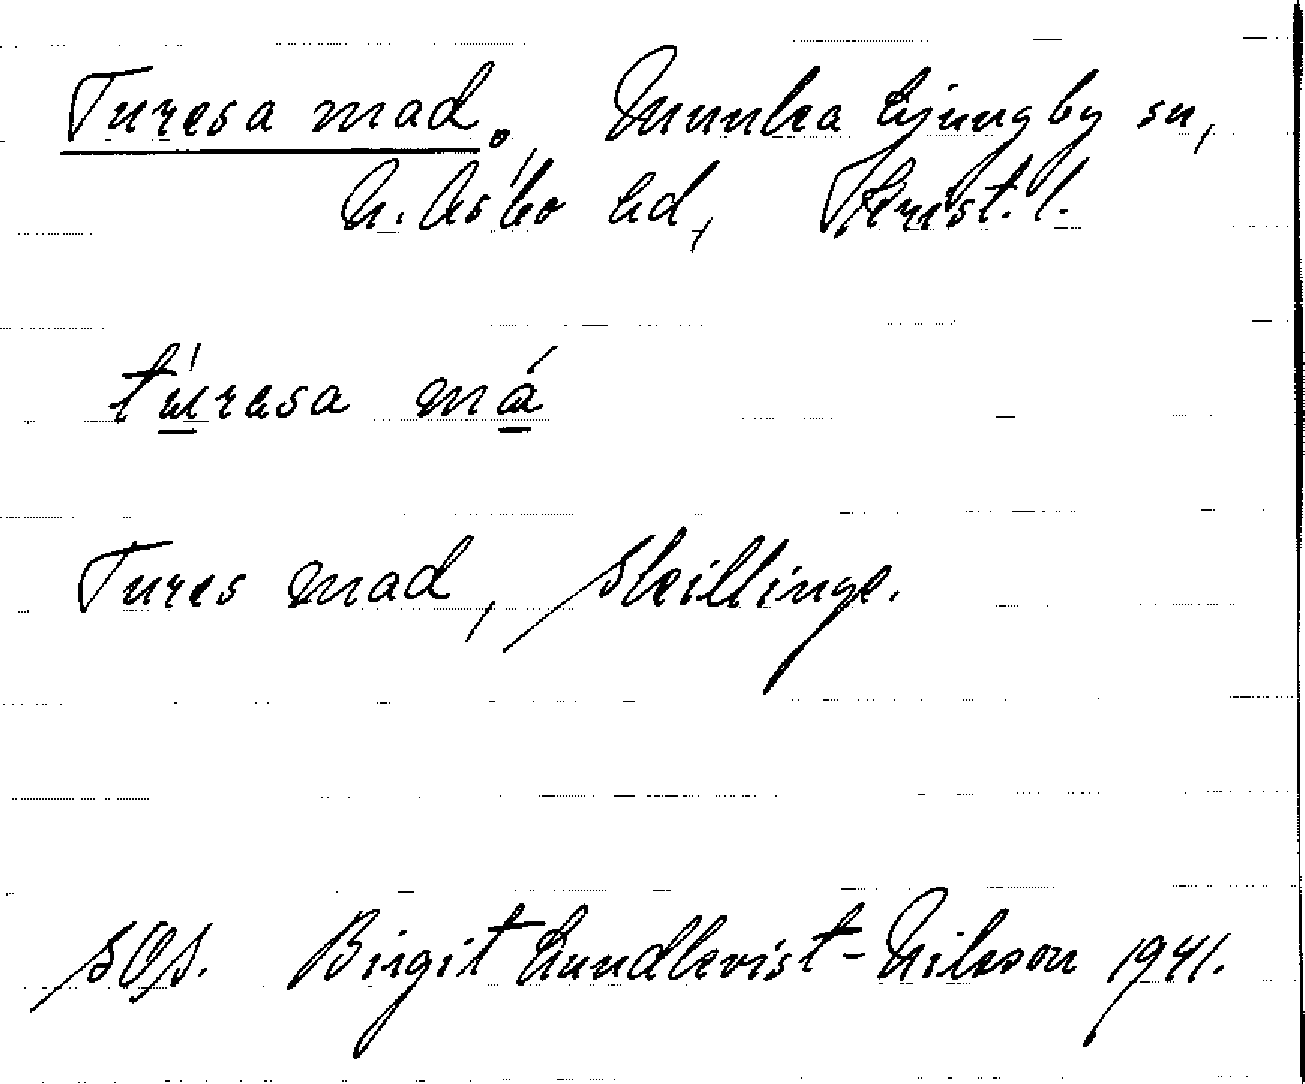 Turesa mad. Munka Ljungby sn,
N. Åsbo hd, Krist. l.
tú̲rasa má̲
Tures mad, Skillinge.
SOS. Birgit Lundkvist-Nilsson 1941.